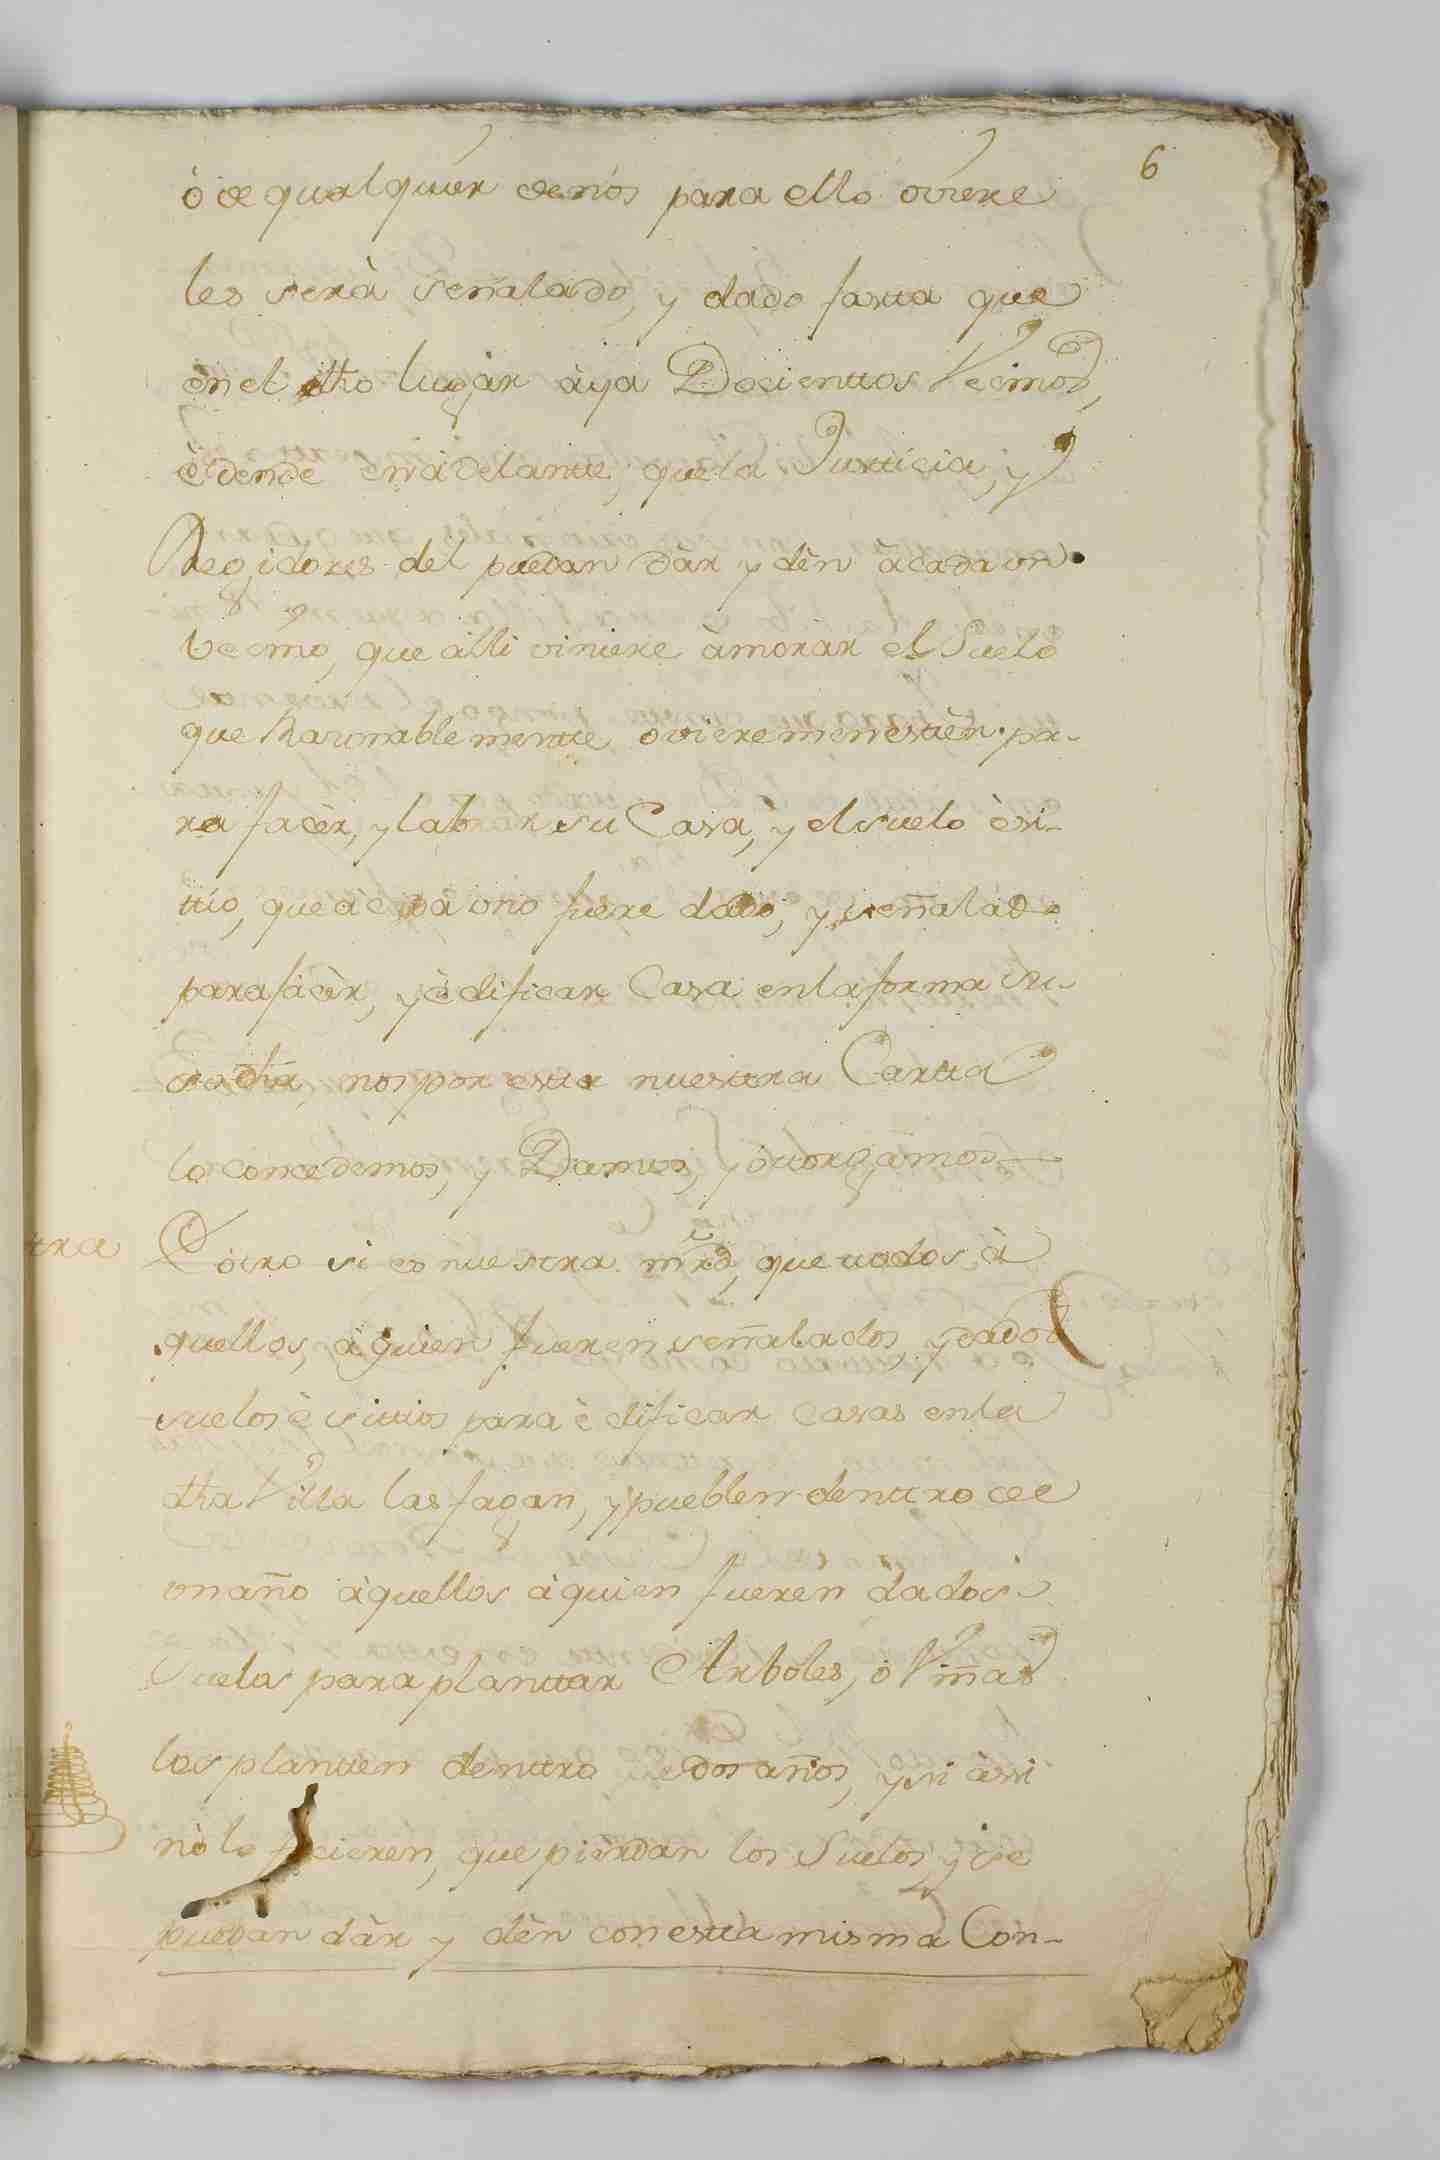 6
ò de qualquier de nós para ello oviere
les serà señalado, y dado fasta que
en el dho lugar àya Docienttos Vecinos,
è dende en àdelantte, que la Justticia, y
Regidores del puedan dàr y dèn àcada un
Vecino, que àlli viniere àmoràr el Suelo
que Razonablementte oviere menesttèr pa-
ra facèr, y labrar su Casa, y el suelo è si-
ttio, que àcadà uno fuere dado, y señalàdo
para fàcèr, y èdificar Casa en la forma su-
sodha, nos por esta nuesttra Cartta
lo concedemos, y Damos, y òttorgàmos
tra
E òtro si es nuestra mrd, que ttodos, à
quellos, à quien fueren señalados, y dados
suelos è sittios para èdificar casas en la
dha Villa las fagan, y pueblen denttro de
un año àquellos àquien fueren dados
Suelos para planttar Arboles, ò Viñas
los plantten denttro de dos años, y si àssi
nò lo ficieren, que pièrdan los Suelos, y se
puedan dàr y dèn con estta misma Con-